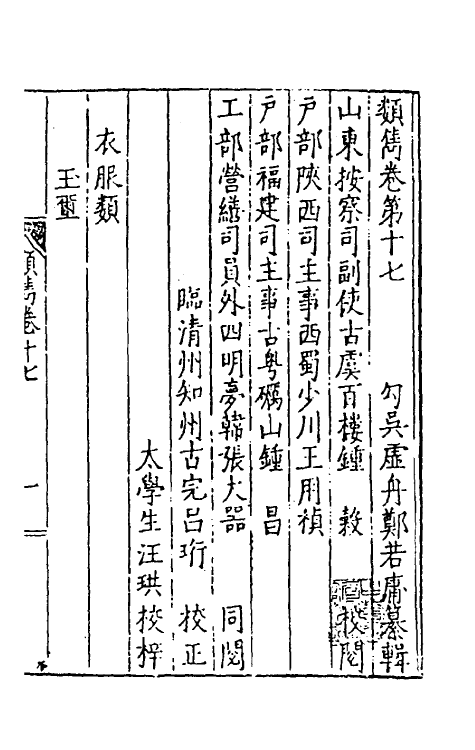 類雋卷第十七 勾吳虛舟鄭若庸纂輯
山東按察司副使古虞百樓鍾 穀 校閱
戶部陝西司主事西蜀少川王用禎
戶部福建司主事古粵礪山鍾 昌
工部營繕司員外四明夢韓張大器 同閱
臨清州知州古完吕珩 校正
太學生汪珙校梓
衣服類
玉璽
類雋卷十七 一